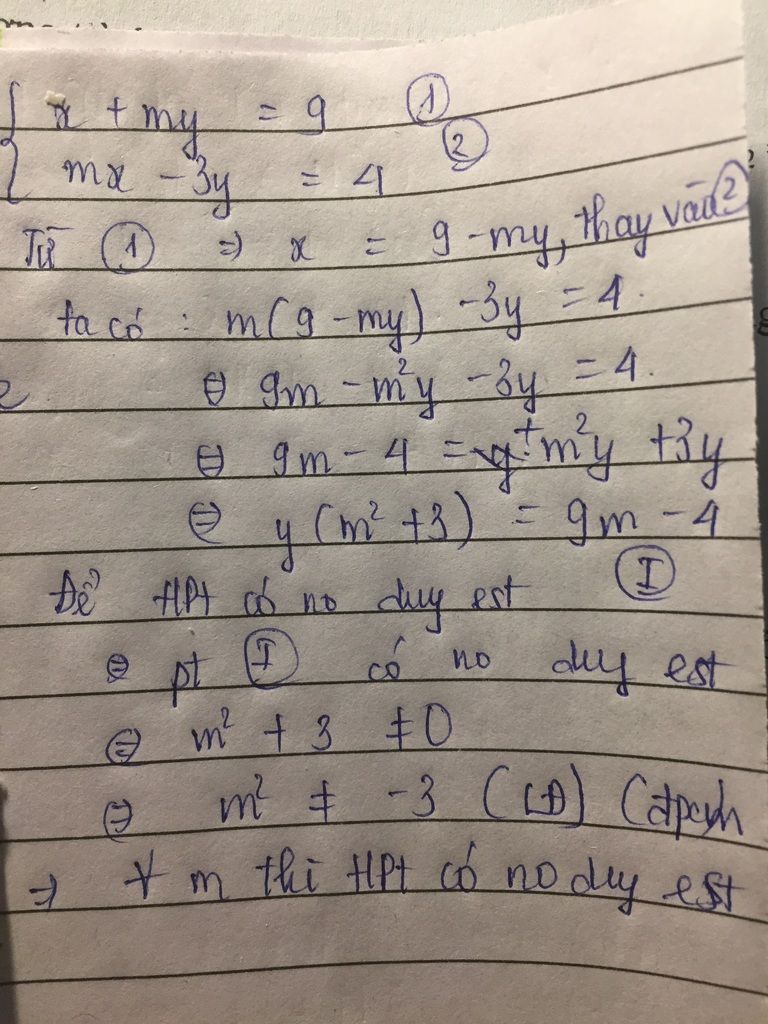 x + my = 9 ①
mx - 3y = 4 ②
Từ ① ⇒ x = 9 - my, thay vào ②
ta có : m(9 - my) - 3y = 4.
⇔ 9m - m²y - 3y = 4.
⇔ 9m - 4 = + m²y + 3y
⇔ y (m² + 3) = 9m - 4
Để HPt có no duy est Ⓘ
⇔ pt Ⓘ có no duy est
⇔ m² + 3 ≠ 0
⇔ m² ≠ -3 (LĐ) (đpcm
⇒ ∀ m thì HPt có no duy est